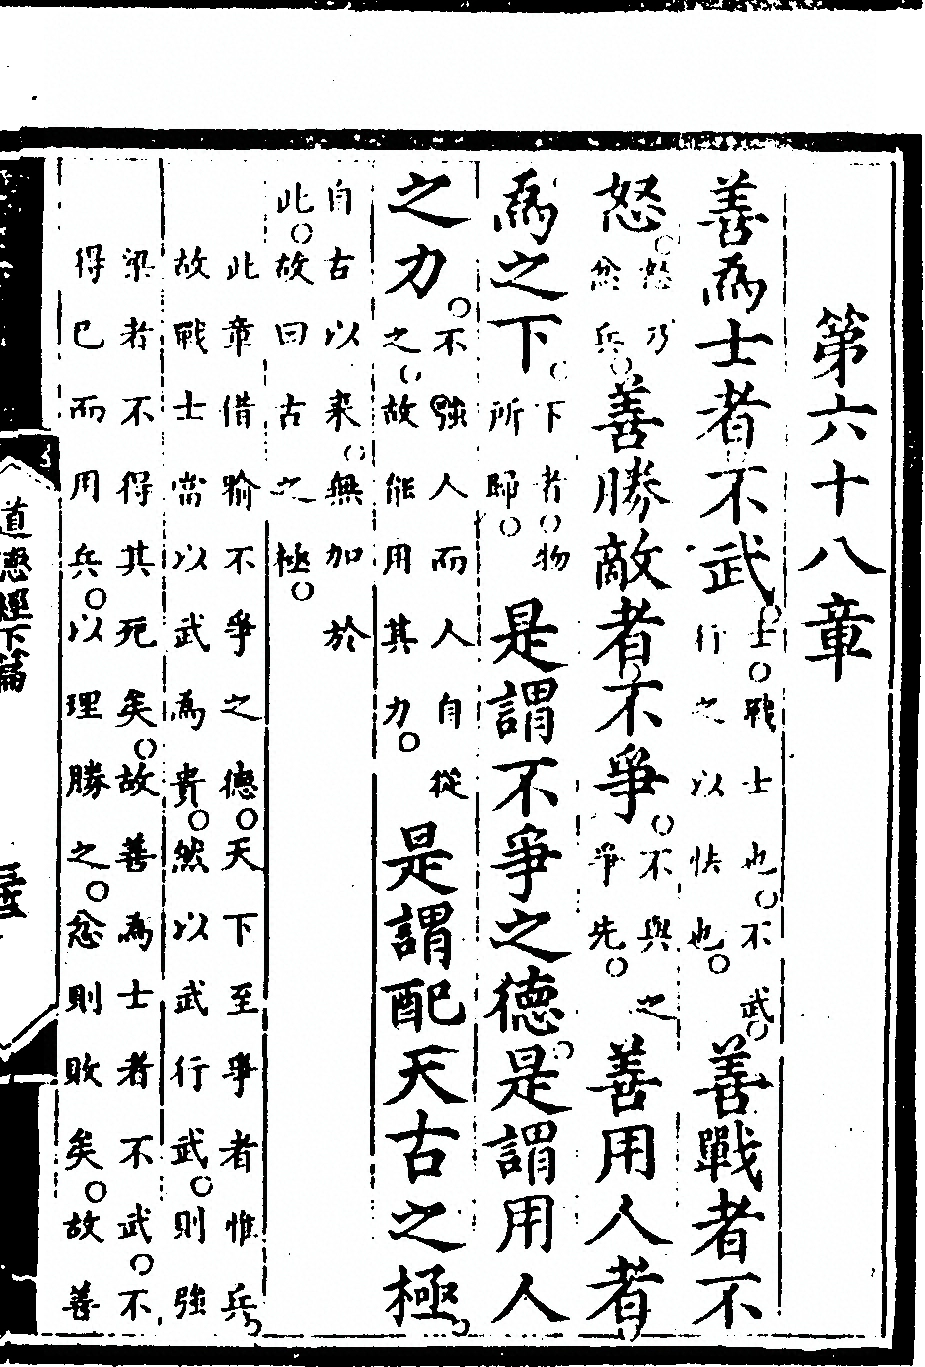 第六十八章
善爲士者不武。士。戰士也。不武。行之以怯也。善戰者不
怒。怒乃忿兵。善勝敵者。不爭。不與之爭先。善用人者。
爲之下。下者。物所歸。是謂不爭之德。是謂用人
之力。不強人而人自從之。故能用其力。是謂配天古之極。
自古以來。無加於
此。故曰古之極。
此章借喻不爭之德。天下至爭者惟兵。
故戰士當以武爲貴。然以武行武。則強
梁者不得其死矣。故善爲士者不武。不
得已而用兵。以理勝之。忿則敗矣。故善
道德經下篇